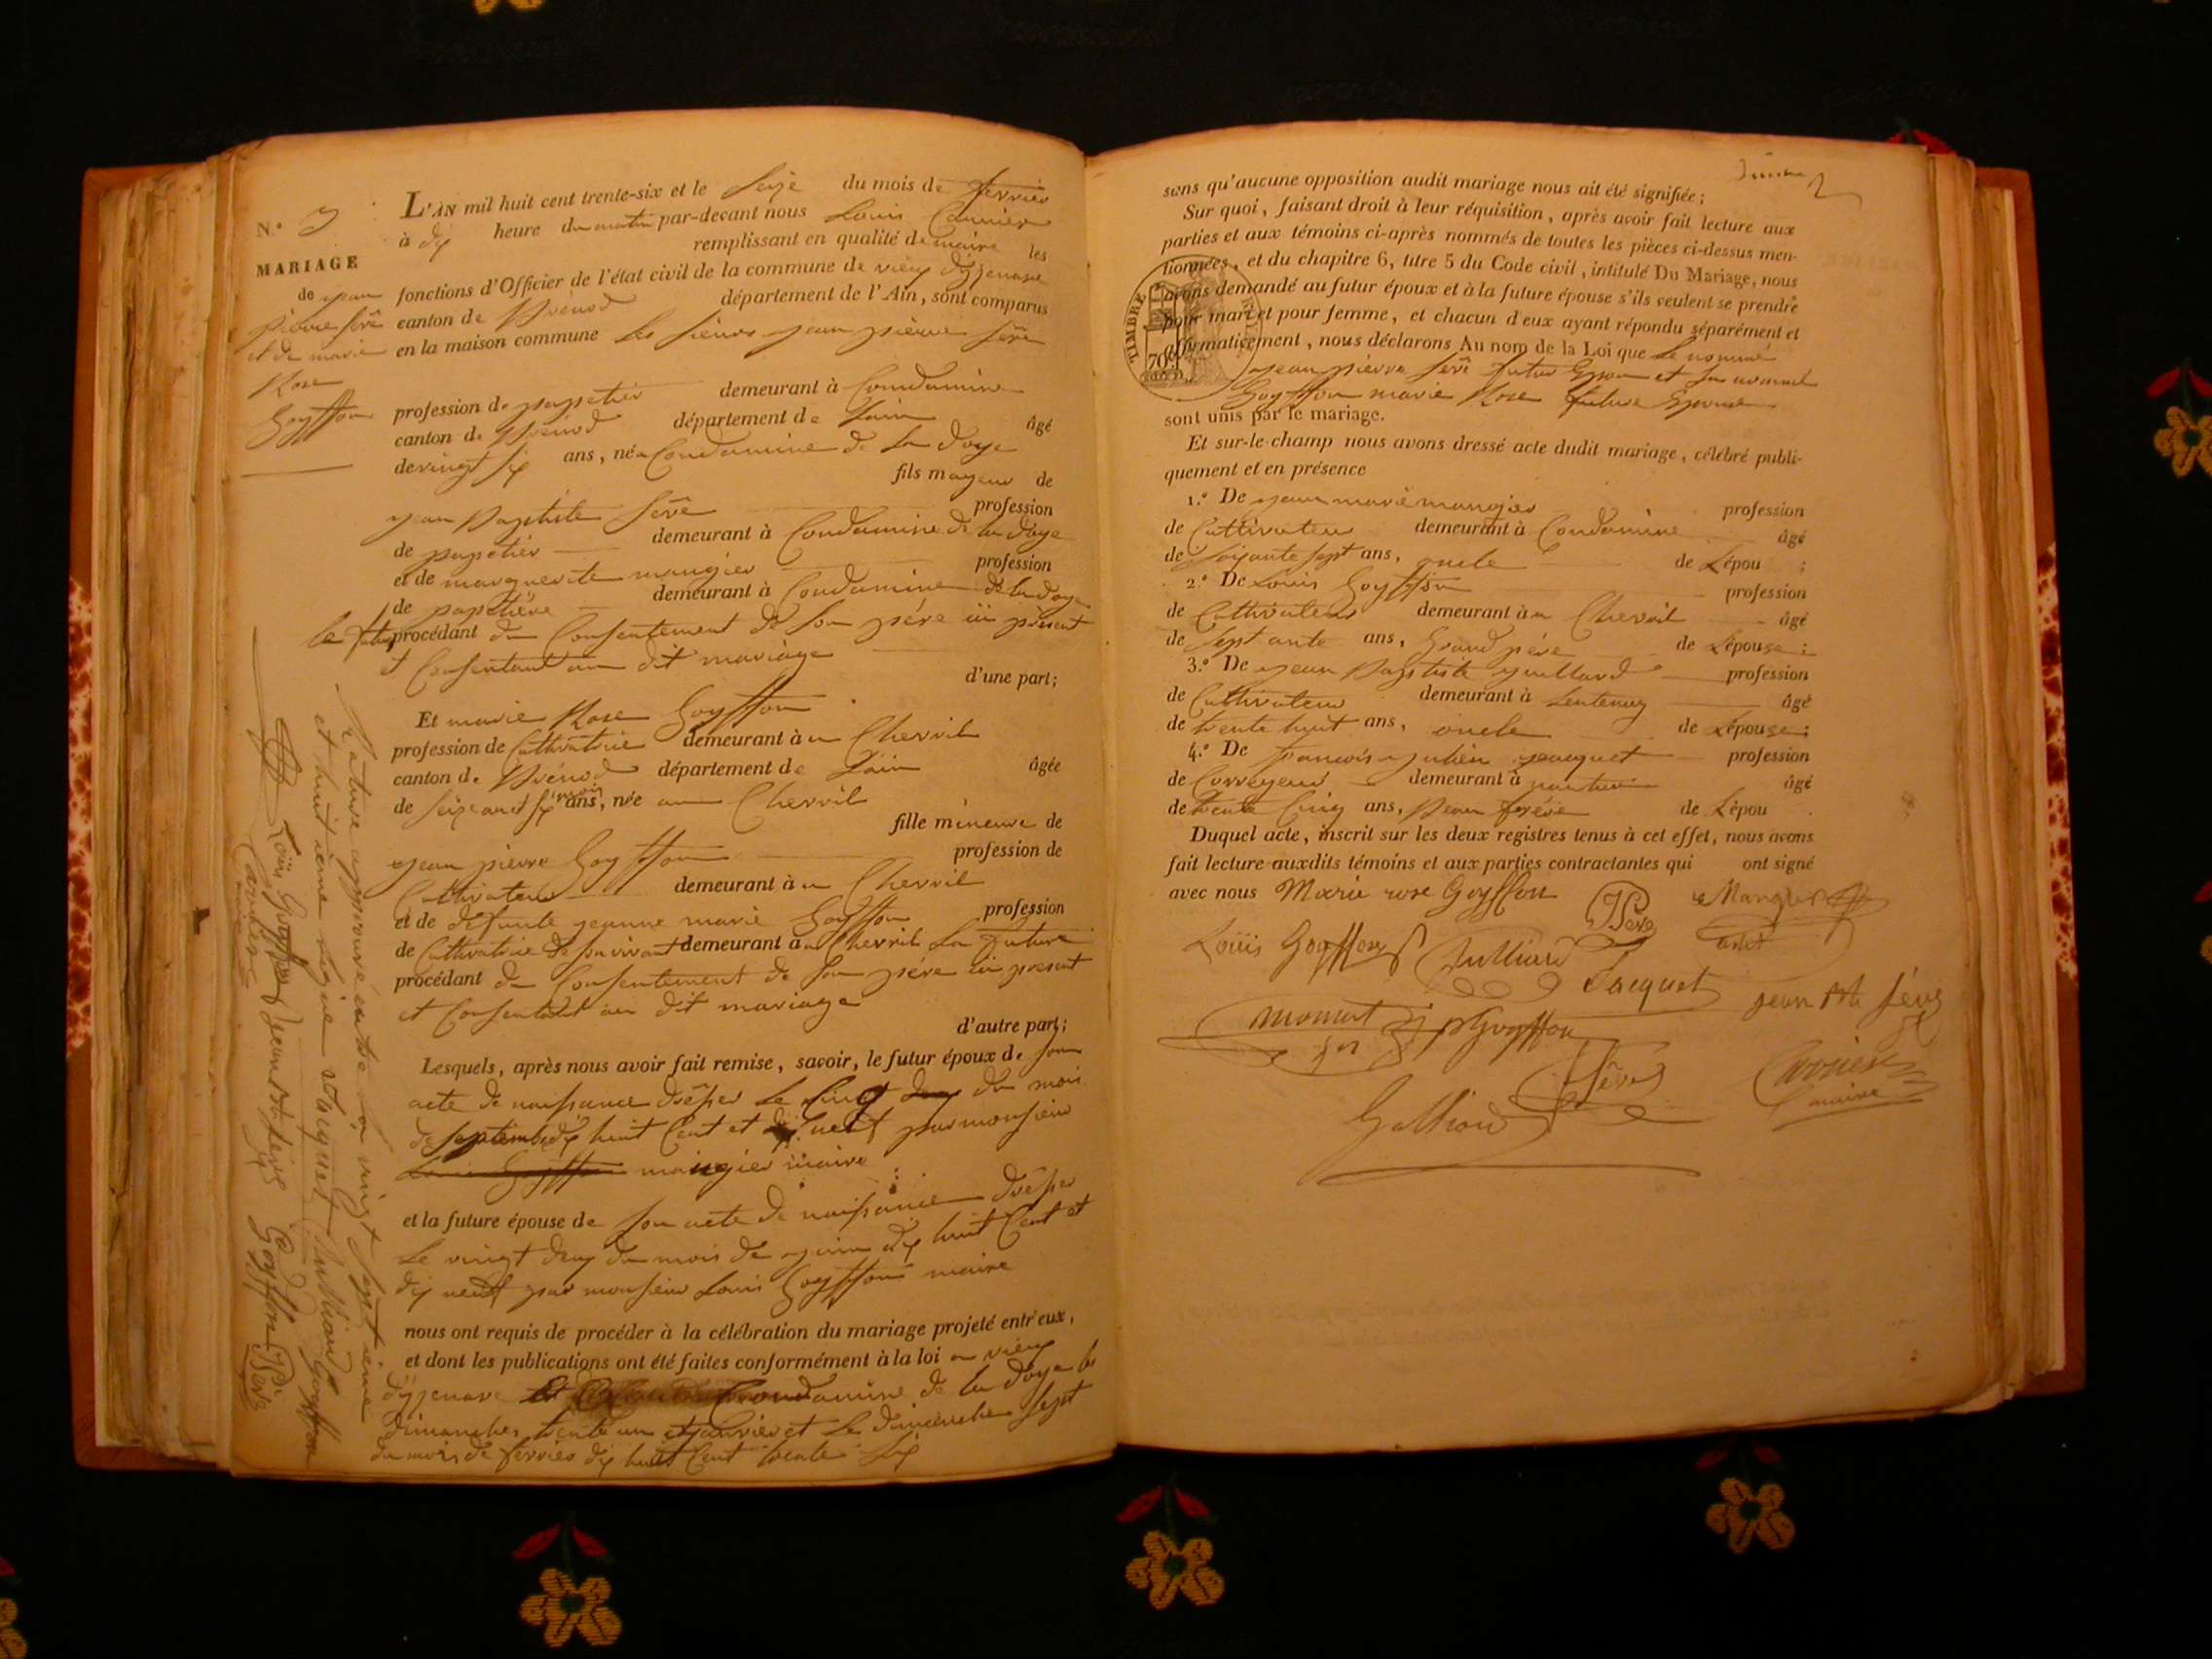 N.° 3
MARIAGE
de jean
pierre Sève
et de marie
Rose
Goyffon
L'AN mil huit cent trente-six et le Seize du mois de fevrier
à dix heure du matin par-devant nous Louis Carrier
remplissant en qualité de maire les
fonctions d'Officier de l'état civil de la commune de vieux d'izenave
canton de Brénod département de l'Ain, sont comparus
en la maison commune les sieurs jean pierre Sève
profession de papetier demeurant à Condamine
canton de Brénod département de Lain âgé
de vingt six ans, né a Condamine de la doye
fils mayeur de
jean Baptiste Sève profession
de papetier demeurant à Condamine de la doye
et de marguerite mangier profession
de papetière demeurant à Condamine de la doye
le futur procédant du Consentement de son père ici présent
et Consentant au dit mariage
d'une part;
Et marie Rose Goyffon
profession de Cultivatrice demeurant à u Chevril
canton de Brénod département de Lain âgée
de seize ans et six mois ans, née au Chevril
fille mineure de
jean pierre Goyffon profession de
Cultivateur demeurant à u Chevril
et de defunte jeanne marie Goyffon profession
de Cultivatrice de son vivant demeurant à u Chevril La future
procédant du Consentement de son père ici présent
et Consentant au dit mariage
d'autre part;
Lesquels, après nous avoir fait remise, savoir, le futur époux de son
acte de naissance dressé le cinq du mois
de septembre dix huit Cent et neuf par monsieur
Louis Goyffon mangier maire
et la future épouse de son acte de naissance dressé
le vingt deux du mois de juin dix huit Cent et
dix neuf par monsieur Louis Goyffon maire
nous ont requis de procéder à la célébration du mariage projeté entr'eux,
et dont les publications ont été faites conformément à la loi a vieux
d'izenave et Condamine de la doye les
dimanches trente un janvier et le dimanche sept
du mois de fevrier dix huit Cent trente six
Rature approuvé entre la vingt septieme
et huitieme ligne Jacquet Julliard Goyffon
Louis Goyffon Jean Bte Sève Goyffon JP Sève
Carrier
maire
sans qu'aucune opposition audit mariage nous ait été signifiée;
Sur quoi, faisant droit à leur réquisition, après avoir fait lecture aux
parties et aux témoins ci-après nommés de toutes les pièces ci-dessus men-
tionnées, et du chapitre 6, titre 5 du Code civil, intitulé Du Mariage, nous
avons demandé au futur époux et à la future épouse s'ils veulent se prendre
pour mari et pour femme, et chacun d'eux ayant répondu séparément et
affirmativement, nous déclarons Au nom de la Loi que le nommé
jean pierre Sève futur Epoux et la nommé
Goyffon marie Rose future Epouse
sont unis par le mariage.
TIMBRE ROYAL
70
Et sur-le-champ nous avons dressé acte dudit mariage, célébré publi-
quement et en présence
1.° De jean marie mangier profession
de Cultivateur demeurant à Condamine âgé
de soixante sept ans, oncle de Lépou ;
2.° De Louis Goyffon profession
de Cultivateur demeurant à u Chevril âgé
de septante ans, Grand père de Lépouse ;
3.° De jean Baptiste juillard profession
de Cultivateur demeurant à Lentenay âgé
de trente huit ans, oncle de Lépouse ;
4.° De francois julien jacquet profession
de Corroyeur demeurant à nantua âgé
de trente Cinq ans, Beau frère de Lépou .
Duquel acte, inscrit sur les deux registres tenus à cet effet, nous avons
fait lecture auxdits témoins et aux parties contractantes qui ont signé
avec nous Marie rose Goyffon JP Sève Mangier
Louis Goyffon Julliard
Jacquet Jean Bte Sève
momet JP Goyffon
Sève Carrier
maire
Gallion